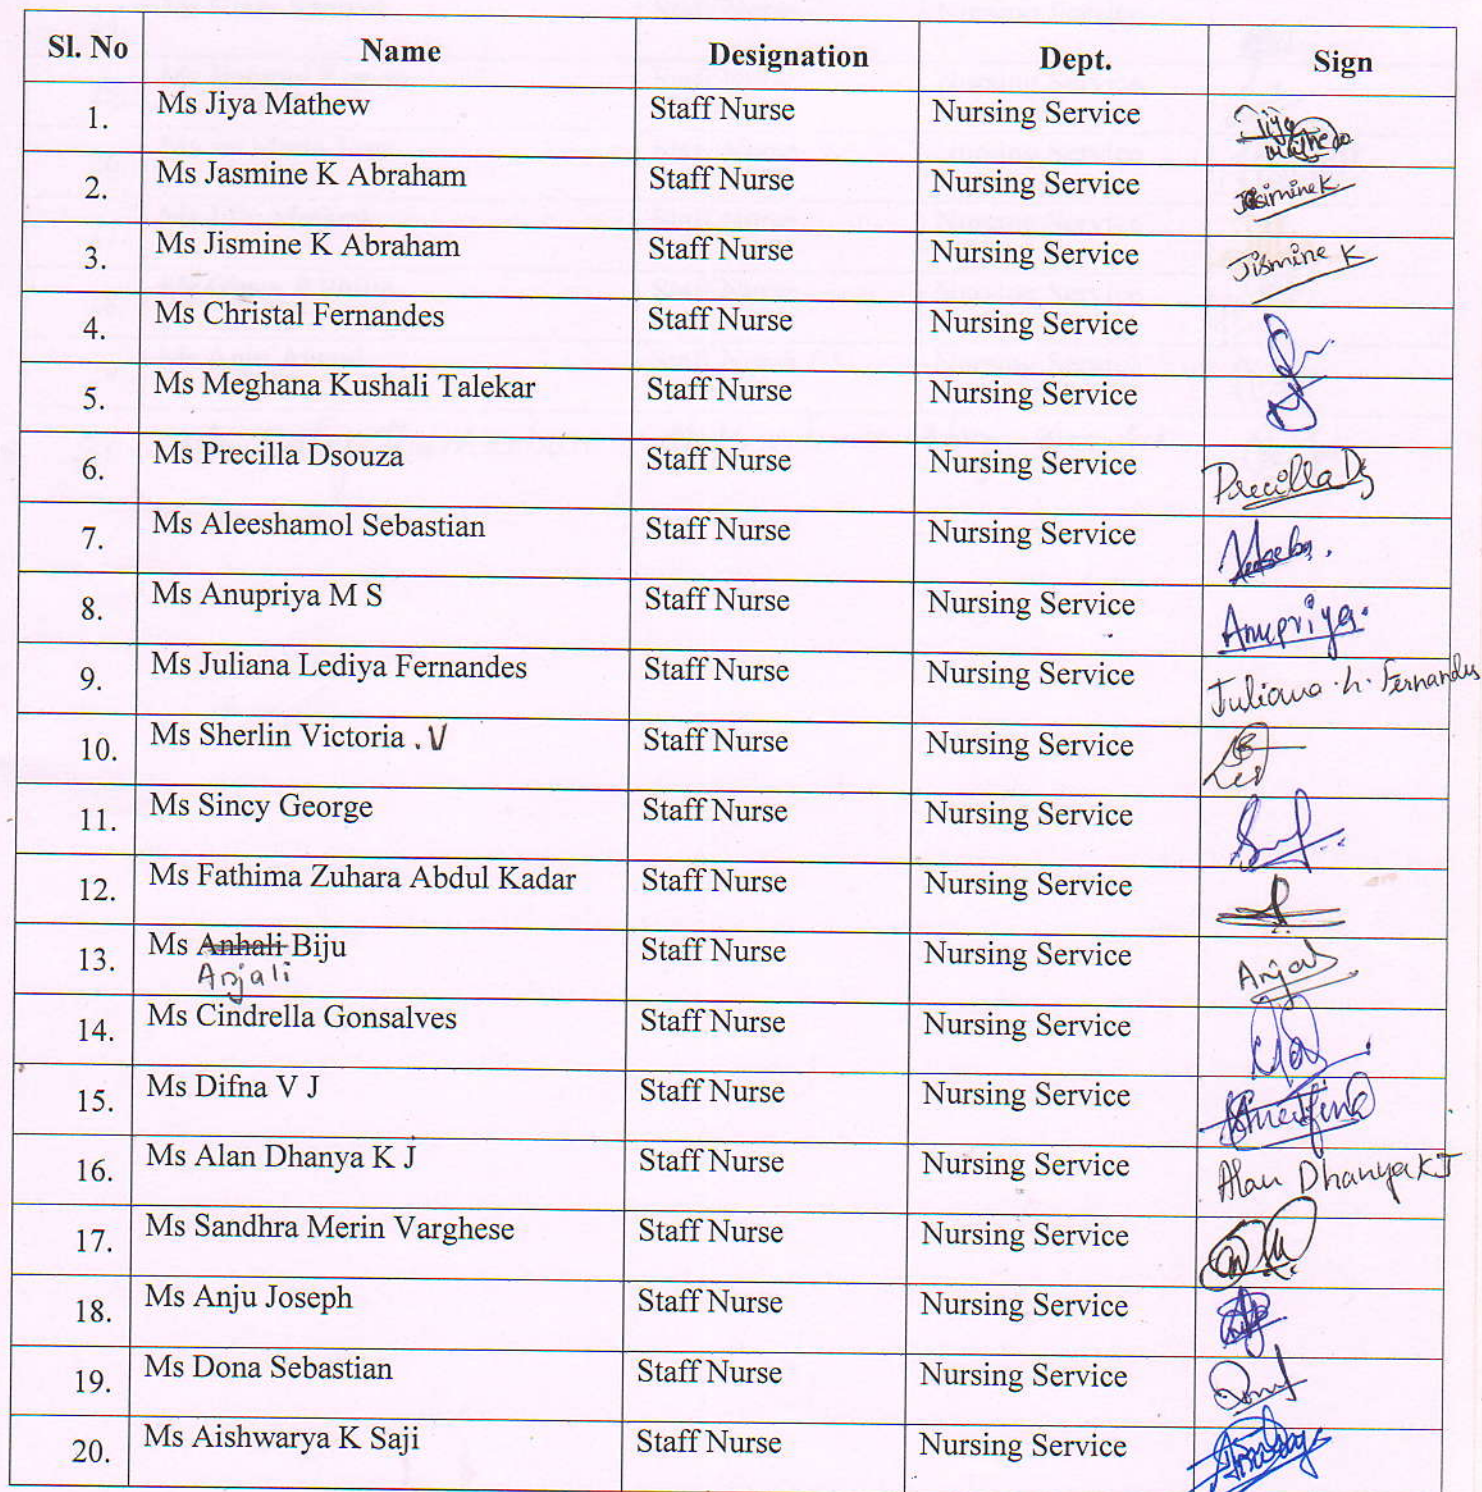 Sl. No Name Designation Dept. Sign
1. Ms Jiya Mathew Staff Nurse Nursing Service Jiya Mathew
2. Ms Jasmine K Abraham Staff Nurse Nursing Service Jasimine K
3. Ms Jismine K Abraham Staff Nurse Nursing Service Jismine K
4. Ms Christal Fernandes Staff Nurse Nursing Service
5. Ms Meghana Kushali Talekar Staff Nurse Nursing Service
6. Ms Precilla Dsouza Staff Nurse Nursing Service Precilla Ds
7. Ms Aleeshamol Sebastian Staff Nurse Nursing Service
8. Ms Anupriya M S Staff Nurse Nursing Service Anupriya.
9. Ms Juliana Lediya Fernandes Staff Nurse Nursing Service Juliana . L . Fernandes
10. Ms Sherlin Victoria . V Staff Nurse Nursing Service
11. Ms Sincy George Staff Nurse Nursing Service
12. Ms Fathima Zuhara Abdul Kadar Staff Nurse Nursing Service
13. Ms Anhali Biju Staff Nurse Nursing Service Anjali
Anjali
14. Ms Cindrella Gonsalves Staff Nurse Nursing Service
15. Ms Difna V J Staff Nurse Nursing Service
16. Ms Alan Dhanya K J Staff Nurse Nursing Service Alan Dhanya K J
17. Ms Sandhra Merin Varghese Staff Nurse Nursing Service
18. Ms Anju Joseph Staff Nurse Nursing Service
19. Ms Dona Sebastian Staff Nurse Nursing Service
20. Ms Aishwarya K Saji Staff Nurse Nursing Service